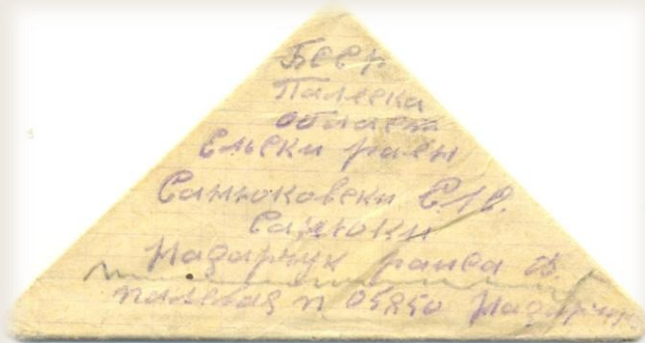 БССР
Палеска
област
Ельски раен
Санюковски С.
Санюки
Надарчук раиса В.
палевая п 05250 Надарчук